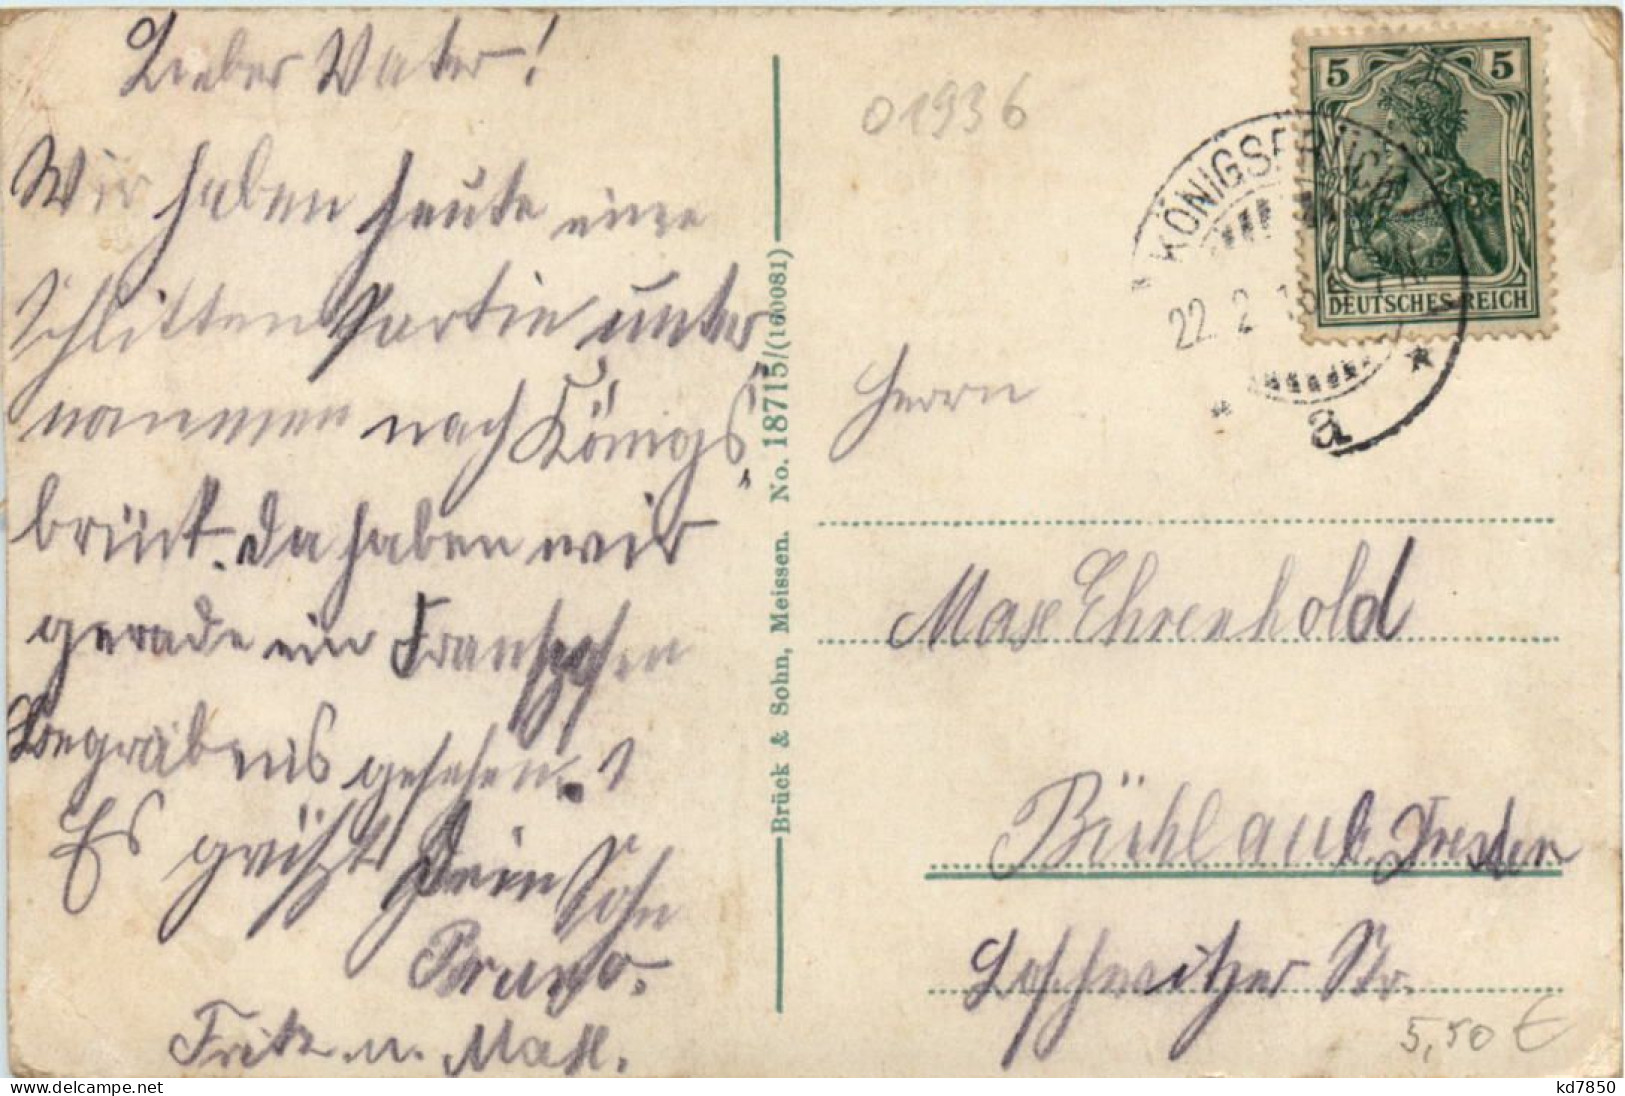 Lieber Vater!
Wir haben heute eine
Schlittenpartie unter
nommen nach Königs
brück. Da haben wir
gerade ein Franzosen
begräbnis gesehen.
Es grüßt Dein Sohn
Bruno.
Fritz u.
01936
5 5
DEUTSCHES REICH
KÖNIGSBRÜCK
22. 2.
a
Herrn
Max Ehrenhold
Bühlau b. Dresden
Loschwitzer Str.
5,50 €
Brück & Sohn, Meissen. No. 18715/(160081)
kd7850